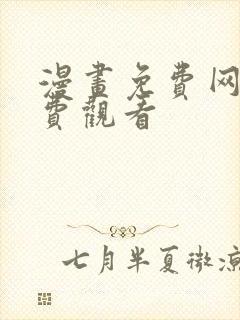 漫畫免费网
費觀看
七月半夏微凉